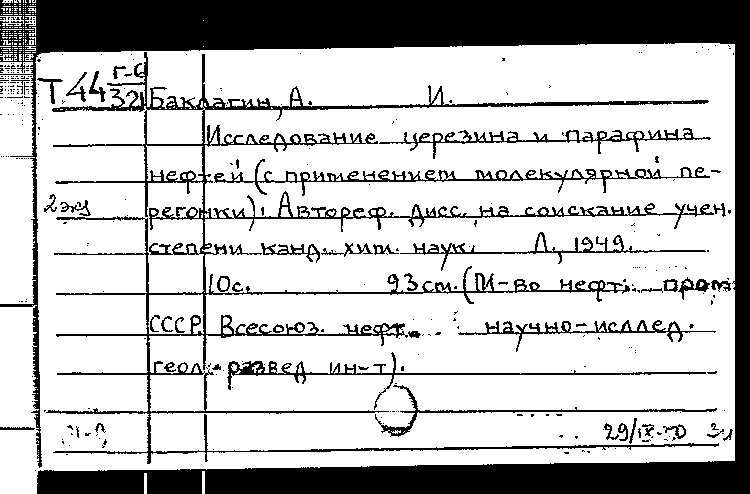 Т44 Г-6/32 Баклагин, А. И.
Исследование церезина и парафина
нефтей (с применением молекулярной пе-
2 экз регонки): Автореф. дисс. на соискание учен.
степени канд. хим. наук. Л., 1949.
10с. 23 см. (М-во нефт. пром.
СССР. Всесоюз. нефт. научно-исслед.
геол.-развед. ин-т).
29/IX-50